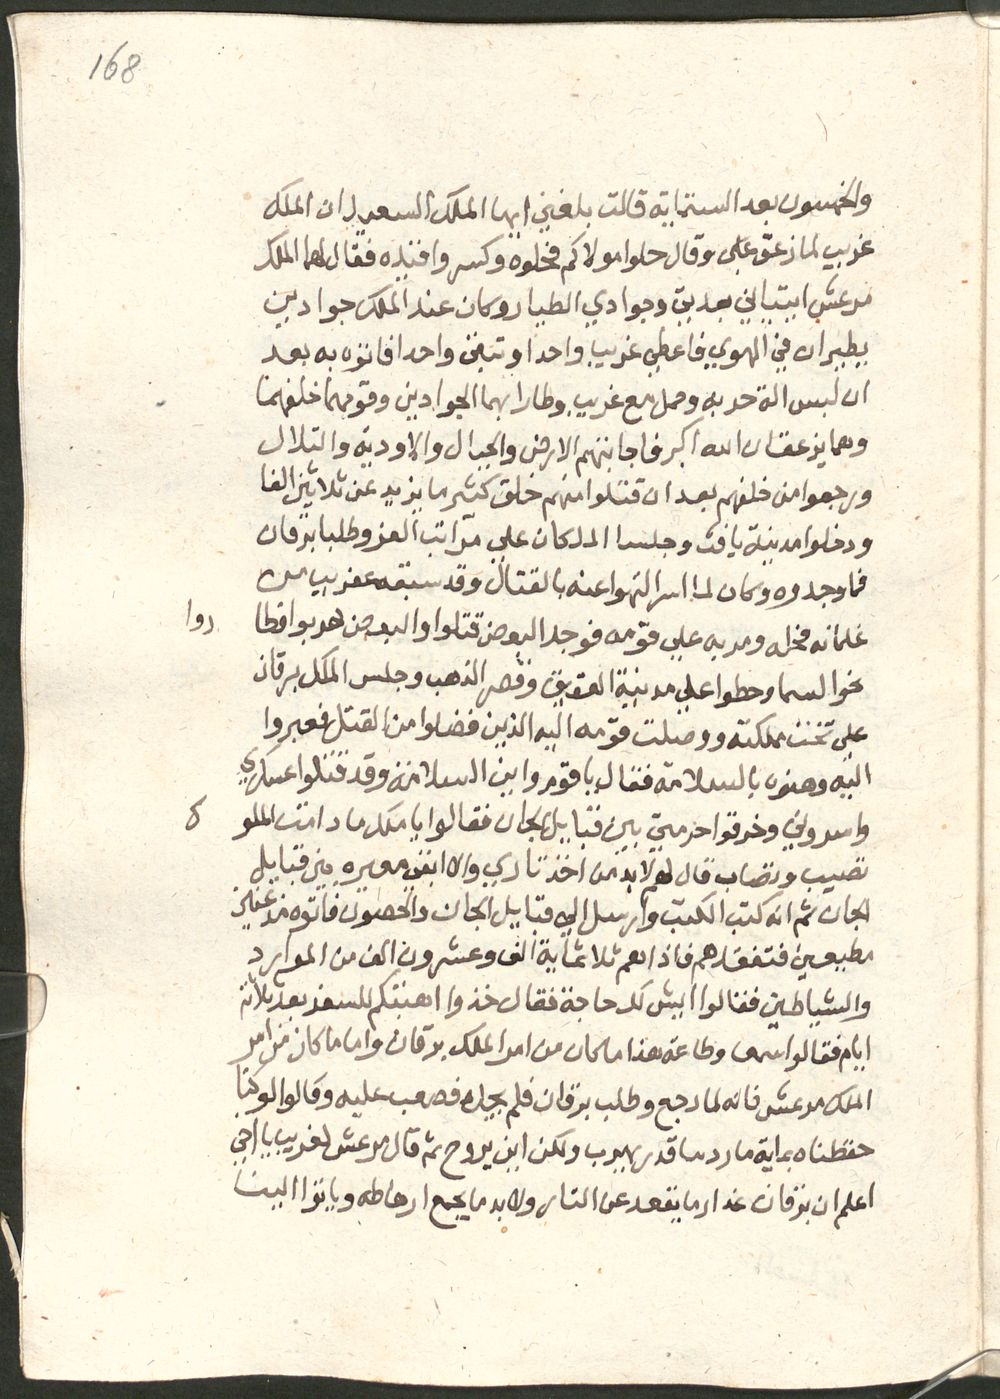 168
والخمسون بعد الستماية قالت بلغني ايها الملك السعيد ان الملك
غريب لما زعق علي وقال حلوا مولاكم فحلوه وكسروا قنيده فقال لهما الملك
مرعش ايتيالي بعديتي وجوادي الطيار وكان عند الملك جوادين
يطيران في الهوي فاعطي غريب واحدا وتبقي واحدا فاتوه به بعد
ان لبس الة حربه وحمل مع غريب وطارا بهما الجوادين وقومهما خلفهما
وهما يزعقان الله اكبر فاجابتهم الارض والجبال والاودية والتلال
ورجعوا من خلفهم بعد ان قتلوا منهم خلق كتير ما يزيد عن ثلاثين الفا
ودخلوا مدينة يافث وجلسا الملكان علي مراتب العز وطلبا برقان
فما وجدوه وكان لما اسر التهوا عنه بالقتال وقد سبقه عفريب من
غلمانه فحله ومر به علي قومه فوجد البعض قتلوا والبعض هربوا فطا
روا
نحو السما وحطوا علي مدينة العقيق وقصر الذهب وجلس الملك برقان
علي تخت مملكته ووصلت قومه اليه الذين فضلوا من القتل فعبروا
اليه وهنوه بالسلامة فقال يا قوم واين السلامة وقد قتلوا عسكري
واسروني وخرقوا حرمتي بين قبايل الجان فقالوا يا ملك ما دامت الملو
ك
تصيب وتصاب قال لهم لا بد من اخذ تاري والا ابقي معيره بين قبايل
الجان ثم انه كتب الكتب وارسل الي قبايل الجان والحصون فاتوه مذعنين
مطيعين فتفقدهم فاذا هم ثلاثماية الف وعشرون الف من الموارد
والشياطين فقالوا ايش لك حاجة فقال خذوا اهبتكم للسفر بعد ثلاثة
ايام فقالوا سمعا وطاعة هذا ما كان من امر الملك برقان واما ما كان من امر
الملك مرعش فانه لما رجع وطلب برقان فلم يجده فصعب عليه وقالوا لو كنا
حفظناه بماية مارد ما قدر يهرب ولكن اين يروح ثم قال مرعش لغريب يا اخي
اعلم ان برقان غدار ما يقعد عن التار ولا بد ما يجمع ارهاطه وياتوا الينا